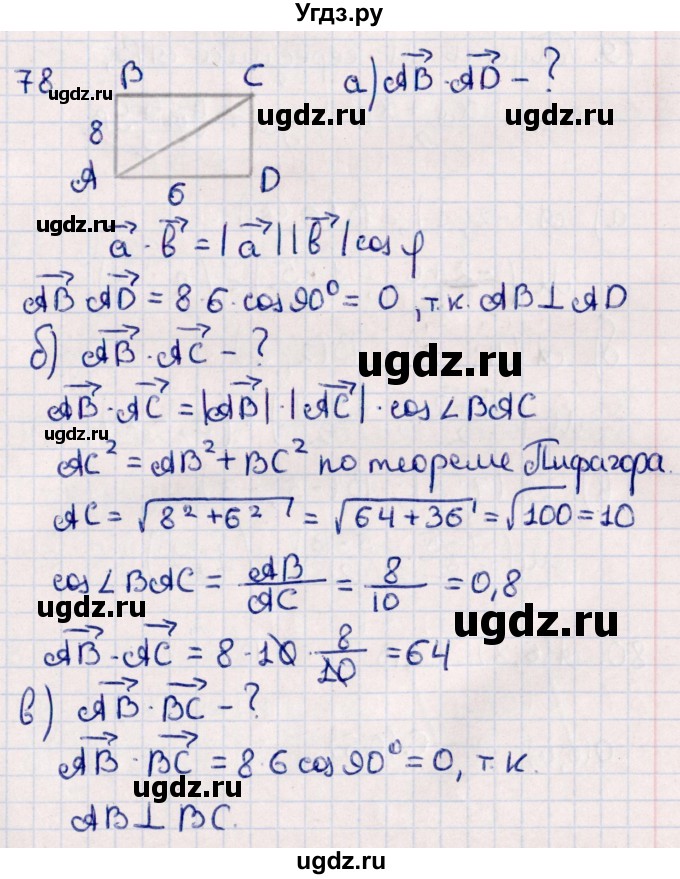 Угдз.ру
78. B C а) AB⃗ · AD⃗ – ?
ugdz.ru ugdz.ru
8
A 6 D
ugdz.ru ugdz.ru
a⃗ · b⃗ = |a⃗| |b⃗| cos φ
ugdz.ru
AB⃗ AD⃗ = 8·6·cos90° = 0, т.к. AB ⊥ AD
б) AB⃗ · AC⃗ – ? ugdz.ru
AB⃗ · AC⃗ = |AB⃗| · |AC⃗| · cos∠BAC
ugdz.ru
AC² = AB² + BC² по теореме Пифагора.
AC = √(8² + 6²) = √(64 + 36) = √100 = 10
ugdz.ru
cos∠BAC = AB/AC = 8/10 = 0,8
ugdz.ru ugdz.ru
AB⃗ · AC⃗ = 8 · 10 · 8/10 = 64
ugdz.ru
в) AB⃗ · BC⃗ – ?
AB⃗ · BC⃗ = 8·6 cos90° = 0, т.к.
ugdz.ru
AB ⊥ BC.
ugdz.ru
ugdz.ru